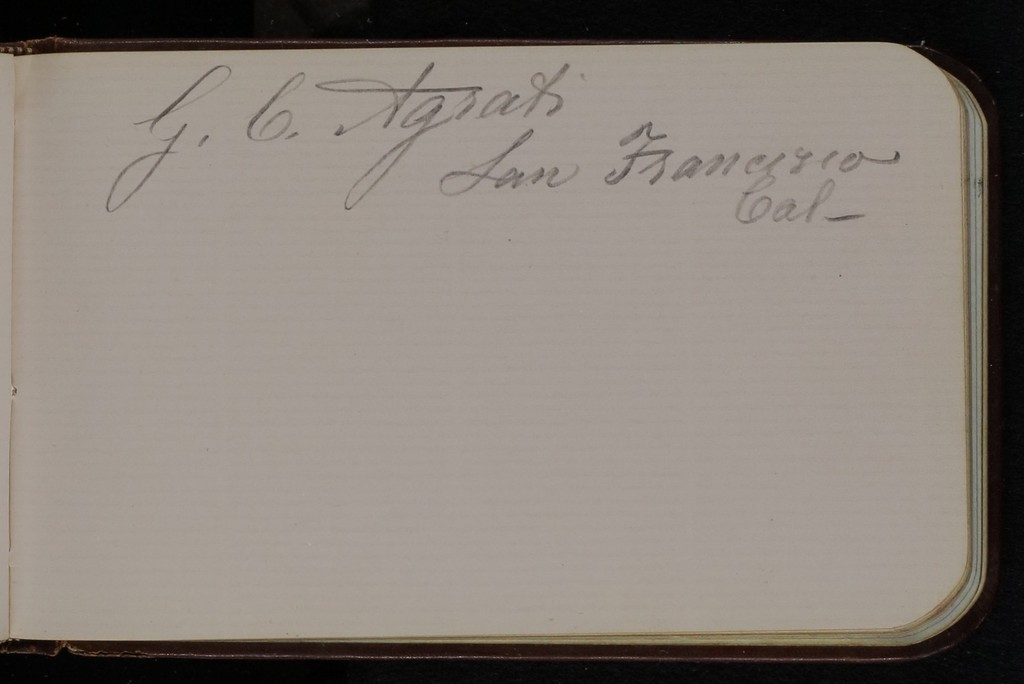 G. C. Agrati
San Francisco
Cal-